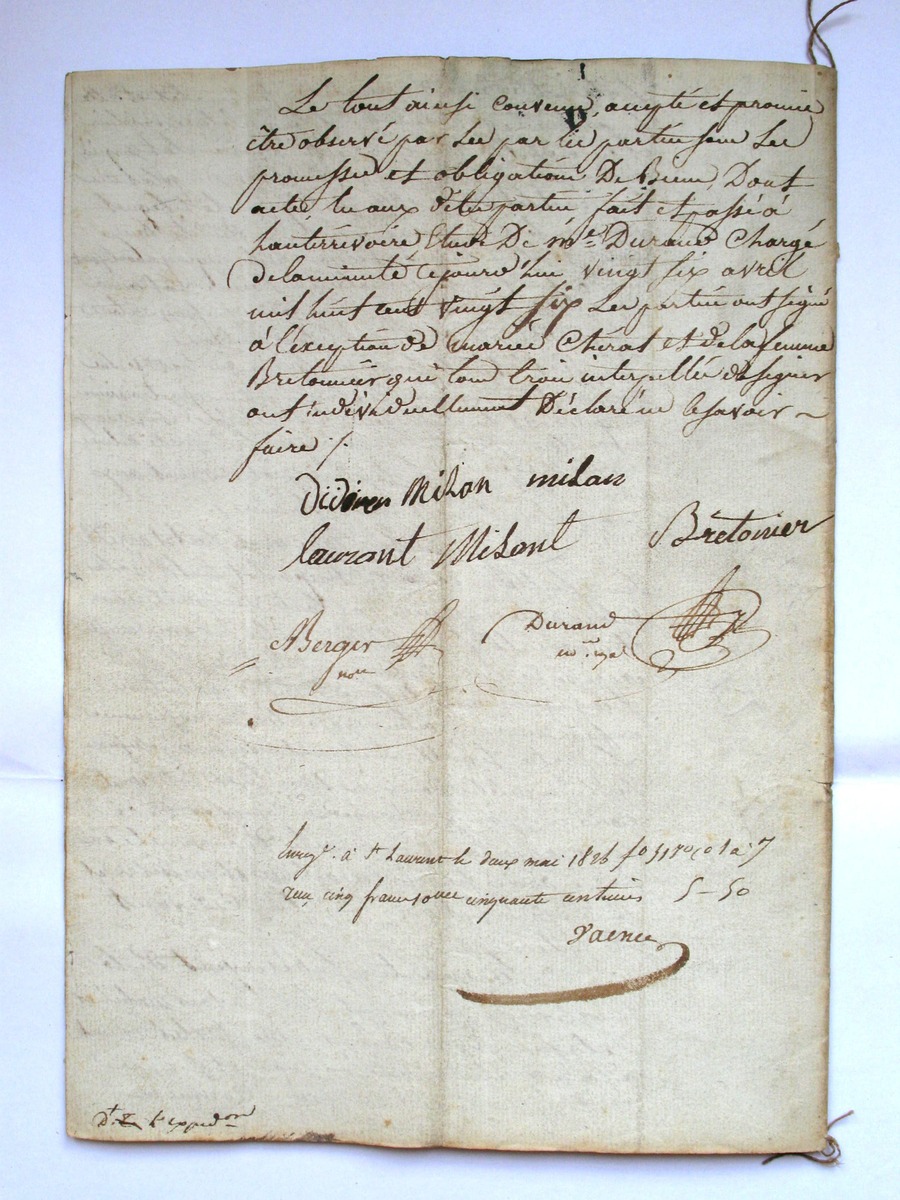 Le tout ainsi convenu, accepté et promis
être observé par les par les parties sous les
promesses et obligations De Biens, Dont
acte, lu aux dites parties fait et passé à
hauterivoire Etude De me. Durand Chargé
de la minute cejourd'hui vingt six avril
mil huit cent vingt six les parties ont signé
à l'exception de mariée Chérat et de la femme
Bretonnier qui tous trois interpellés de signer
ont individuellement Déclaré ne le savoir
faire /.
didier Milan milan
laurant Milant Bretonier
Berger Durand
nore
Enreg. à St. Laurent le deux mai 1826 fo 51 ro co 1 à 7
reçu cinq francs cinquante centimes 5-50
Dt. expedon